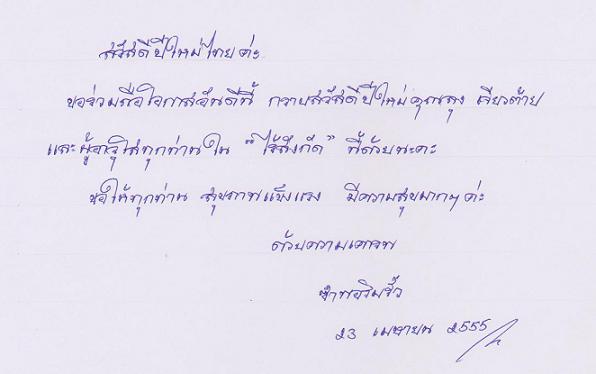 สวัสดีปีใหม่ไทยค่ะ
ขอร่วมถือโอกาสอันดีนี้ กราบสวัสดีปีใหม่คุณลุง เขียวต้าย
และผู้อาวุโสทุกท่านใน “ไร้สังกัด” นี้ด้วยนะคะ
ขอให้ทุกท่าน สุขภาพแข็งแรง มีความสุขมากๆ ค่ะ
ด้วยความเคารพ
23 เมษายน 2555